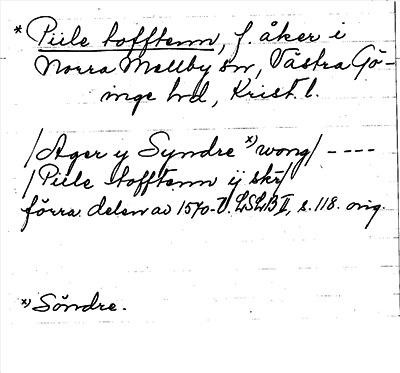 * Piile tofftenn, f. åker i
Norra Mellby sn, Västra Gö-
inge hd, Krist. l.
/Ager y Syndre x) wong/ ----
/Piile tofftenn ij skr/
förra delen av 1570-t. LSLB II, s. 118. orig.
x) Söndre.